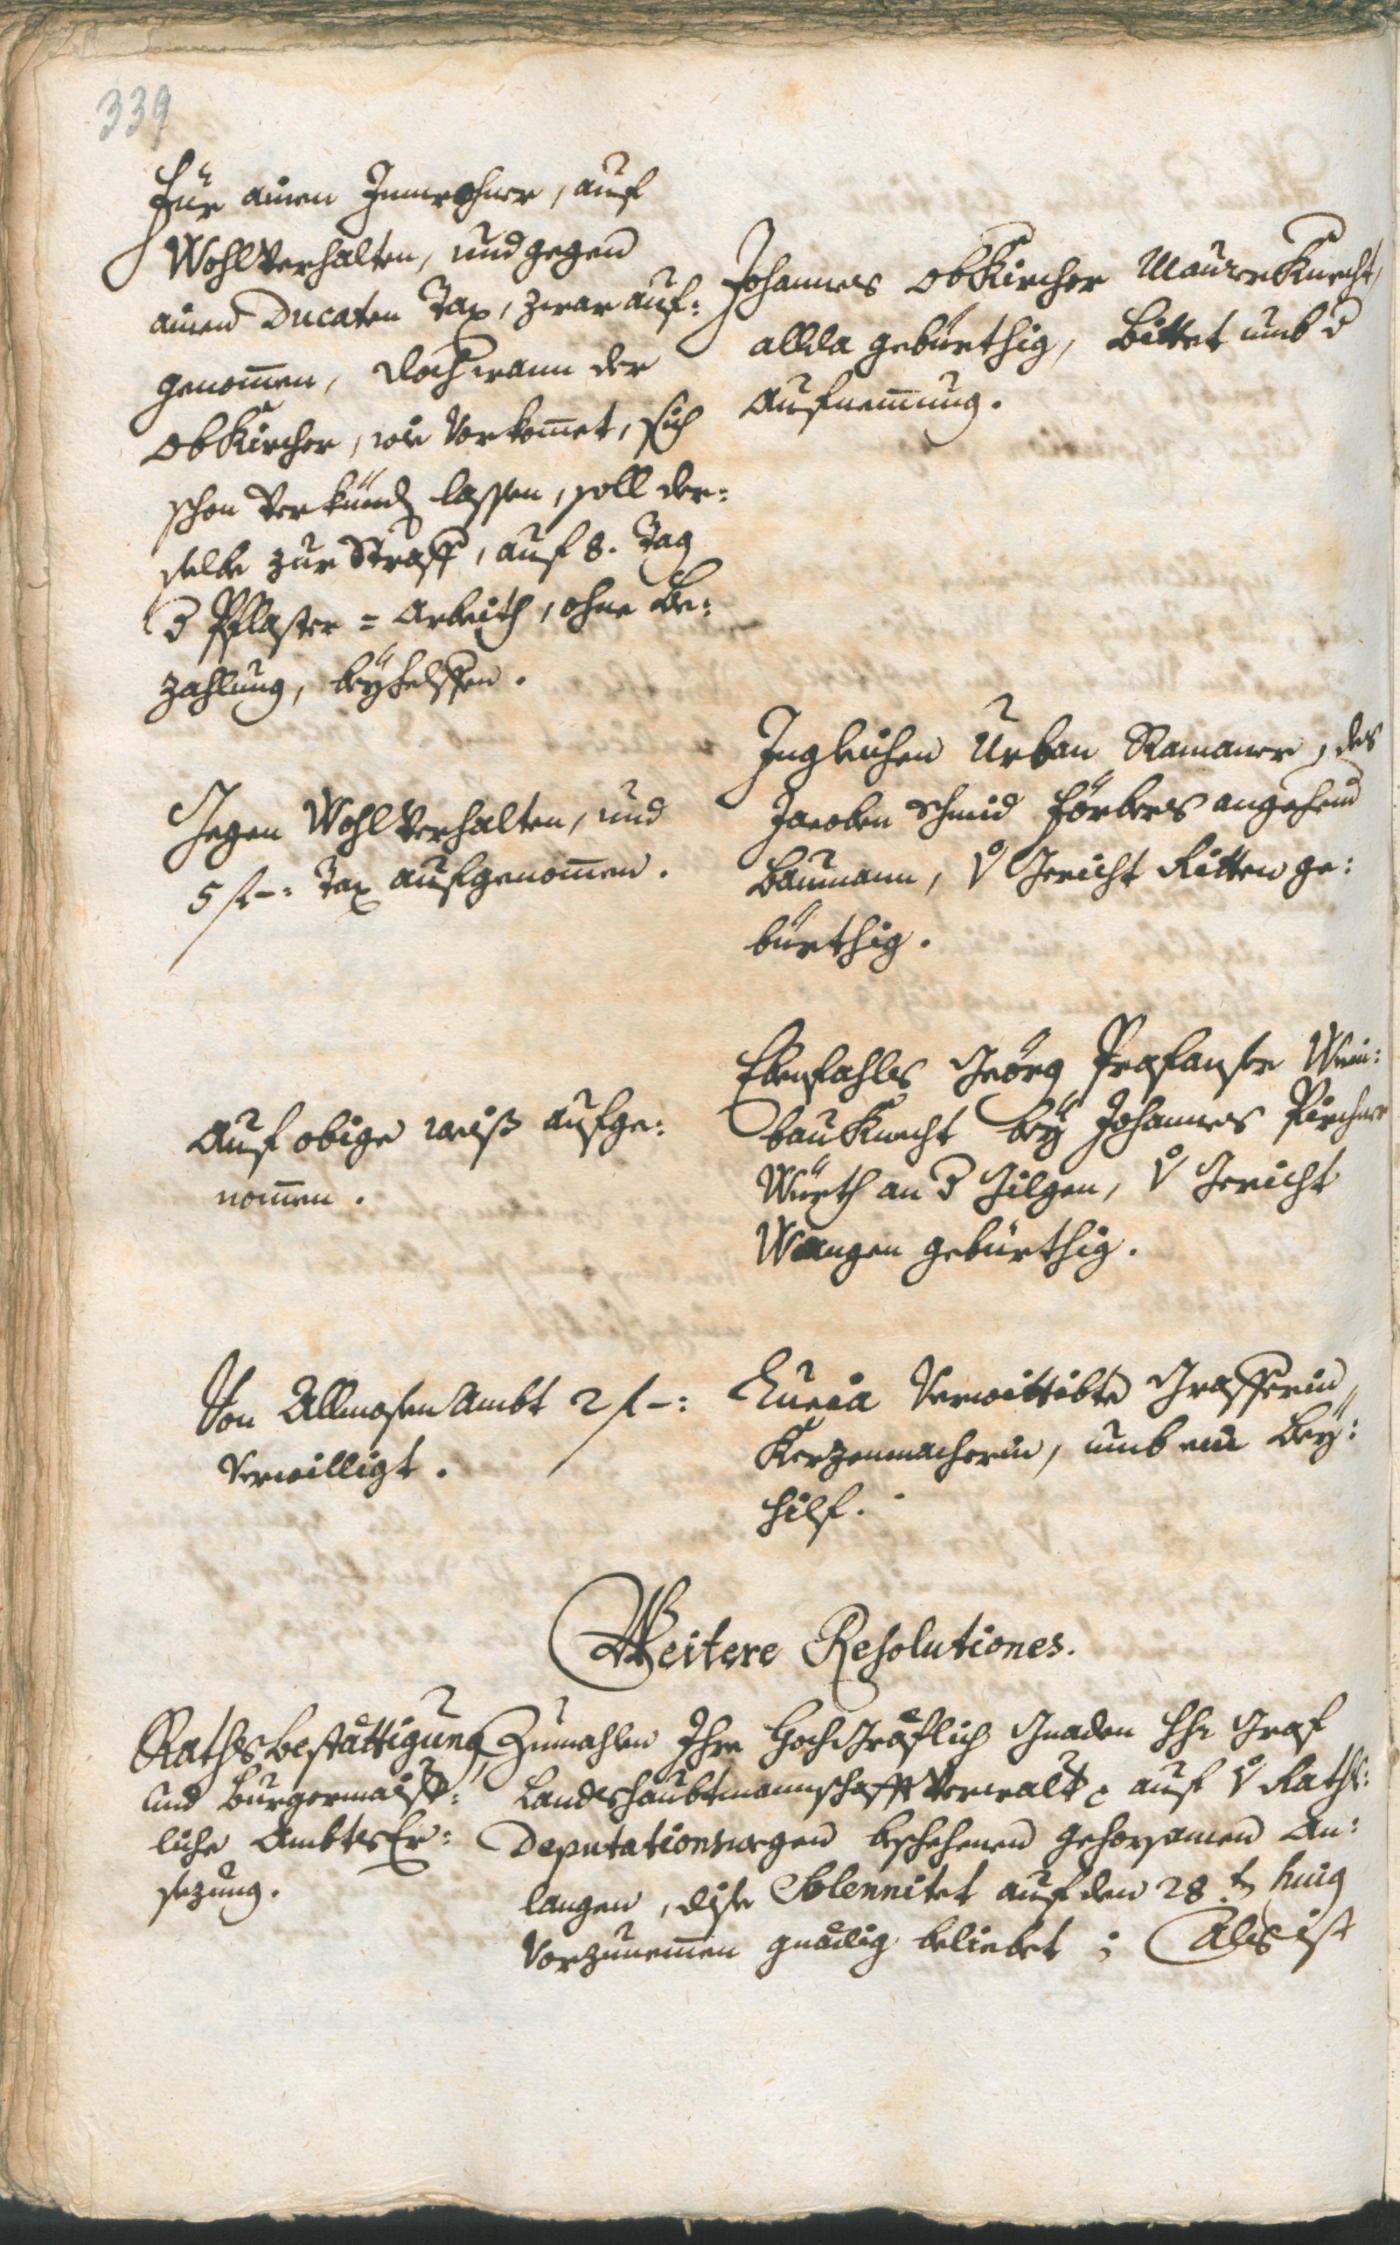 339
Für ainen Innwohner, auf
Wohlverhalten, und gegen
ainen Ducaten Tax, zwar auf:
genomen, doch wann der
Obkircher, wie Vorkomet, sich
schon verkünd lassen, soll der:
selbe zur Straff, auf 8. Tag
Pflaster = Arbeith, ohne Be:
zahlung, beyhelffen.
Johannes Obkircher Maurer Knecht,
allda gebürthig, Bittet umb
Aufnemung.
Gegen Wohlverhalten, und
5 f –: Tax aufgenomen.
Ingleichen Urban Ramaner, des
Jacoben Schmid Förbers angehend
Baumann, Gericht Ritten ge:
bürthig.
Auf obige weiß aufge:
nomen.
Ebenfahls Geörg Prafanter Wein:
bau Knecht bey Johannes Pircher
Würth an Gilgen, Gericht
Wangen gebürthig.
Von Allmosen Ambt 2 f –:
Verwilligt.
Lucia Verwittibte Grafferin
Kerzenmacherin, umb ein Bey:
hilf.
Weitere Resolutiones.
Raths bestättigung,
und Burgermaist:
liche Ambts Er:
sezung.
Zumahlen Ihre Hoch Gräflich Gnaden Hhr Graf
Landtshaubtmannschafft Verwalt auf Raths:
Deputations wegen beschehenen gehorsamen An:
langen, dise Solennitet auf den 28 t huig
Vorzunemen gnädig beliebet; Als ist